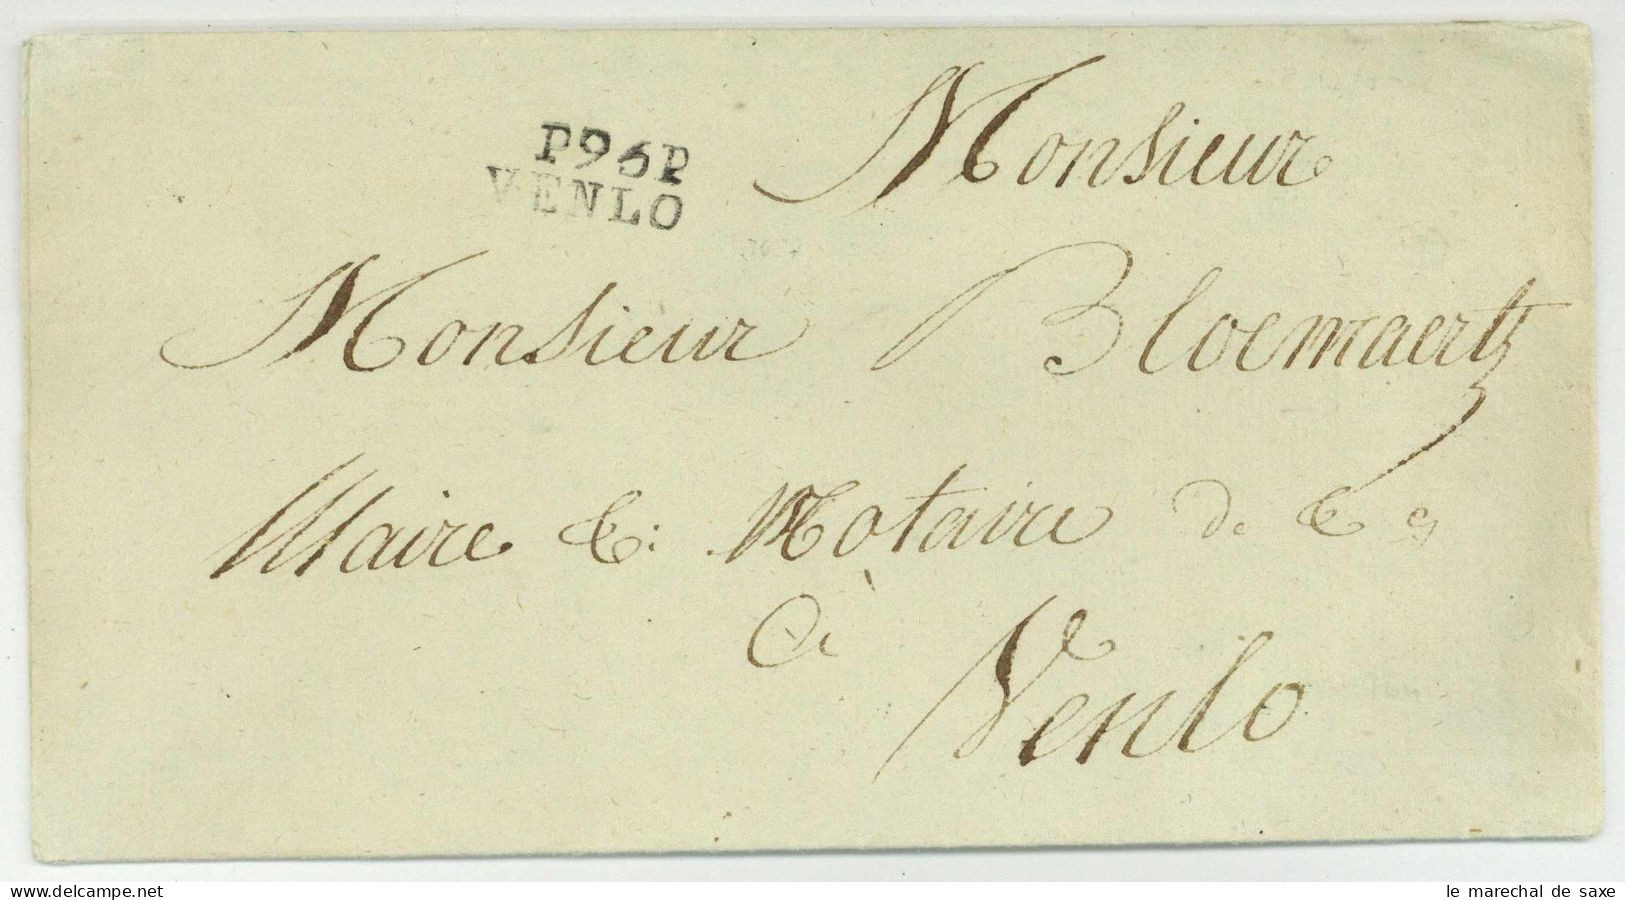 P96P
VENLO
Monsieur
Monsieur Bloemaertz
Maire &: Notaire de & &
à
Venlo
www.delcampe.net
le marechal de saxe